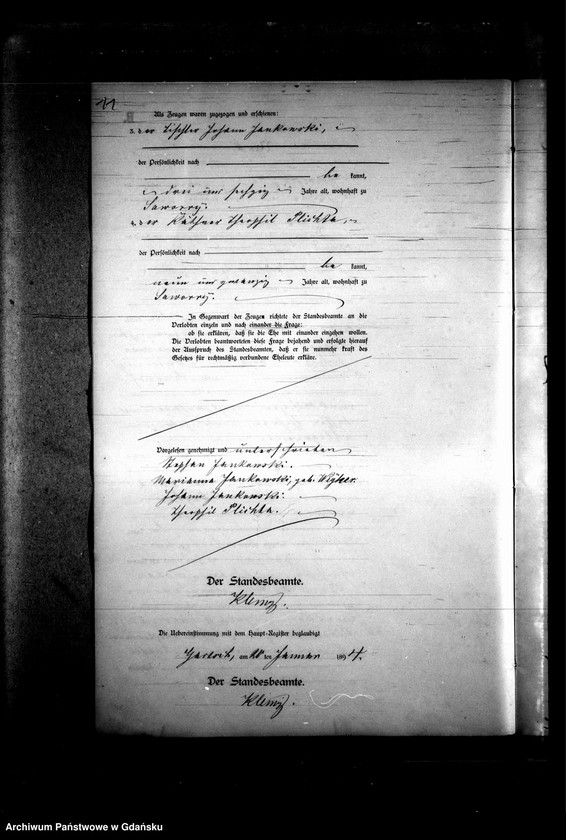 Als Zeugen waren zugezogen und erschienen:
3. der Tischler Johann Jankowski,
der Persönlichkeit nach
be kannt,
drei und sechzig Jahre alt, wohnhaft zu
Saworry.
4. der Käthner Theophil Plichta,
der Persönlichkeit nach
be kannt,
neun und zwanzig Jahre alt, wohnhaft zu
Saworry.
In Gegenwart der Zeugen richtete der Standesbeamte an die
Verlobten einzeln und nach einander die Frage:
ob sie erklären, daß sie die Ehe mit einander eingehen wollen.
Die Verlobten beantworteten diese Frage bejahend und erfolgte hierauf
der Ausspruch des Standesbeamten, daß er sie nunmehr kraft des
Gesetzes für rechtmäßig verbundene Eheleute erkläre.
Vorgelesen genehmigt und unterschrieben
Stephan Jankowski.
Marianna Jankowski, geb.
Johann Jankowski.
Theophil Plichta.
Der Standesbeamte.
Klemz.
Die Uebereinstimmung mit dem Haupt-Register beglaubigt
am ten Januar 1894.
Der Standesbeamte.
Klemz.
Archiwum Państwowe w Gdańsku